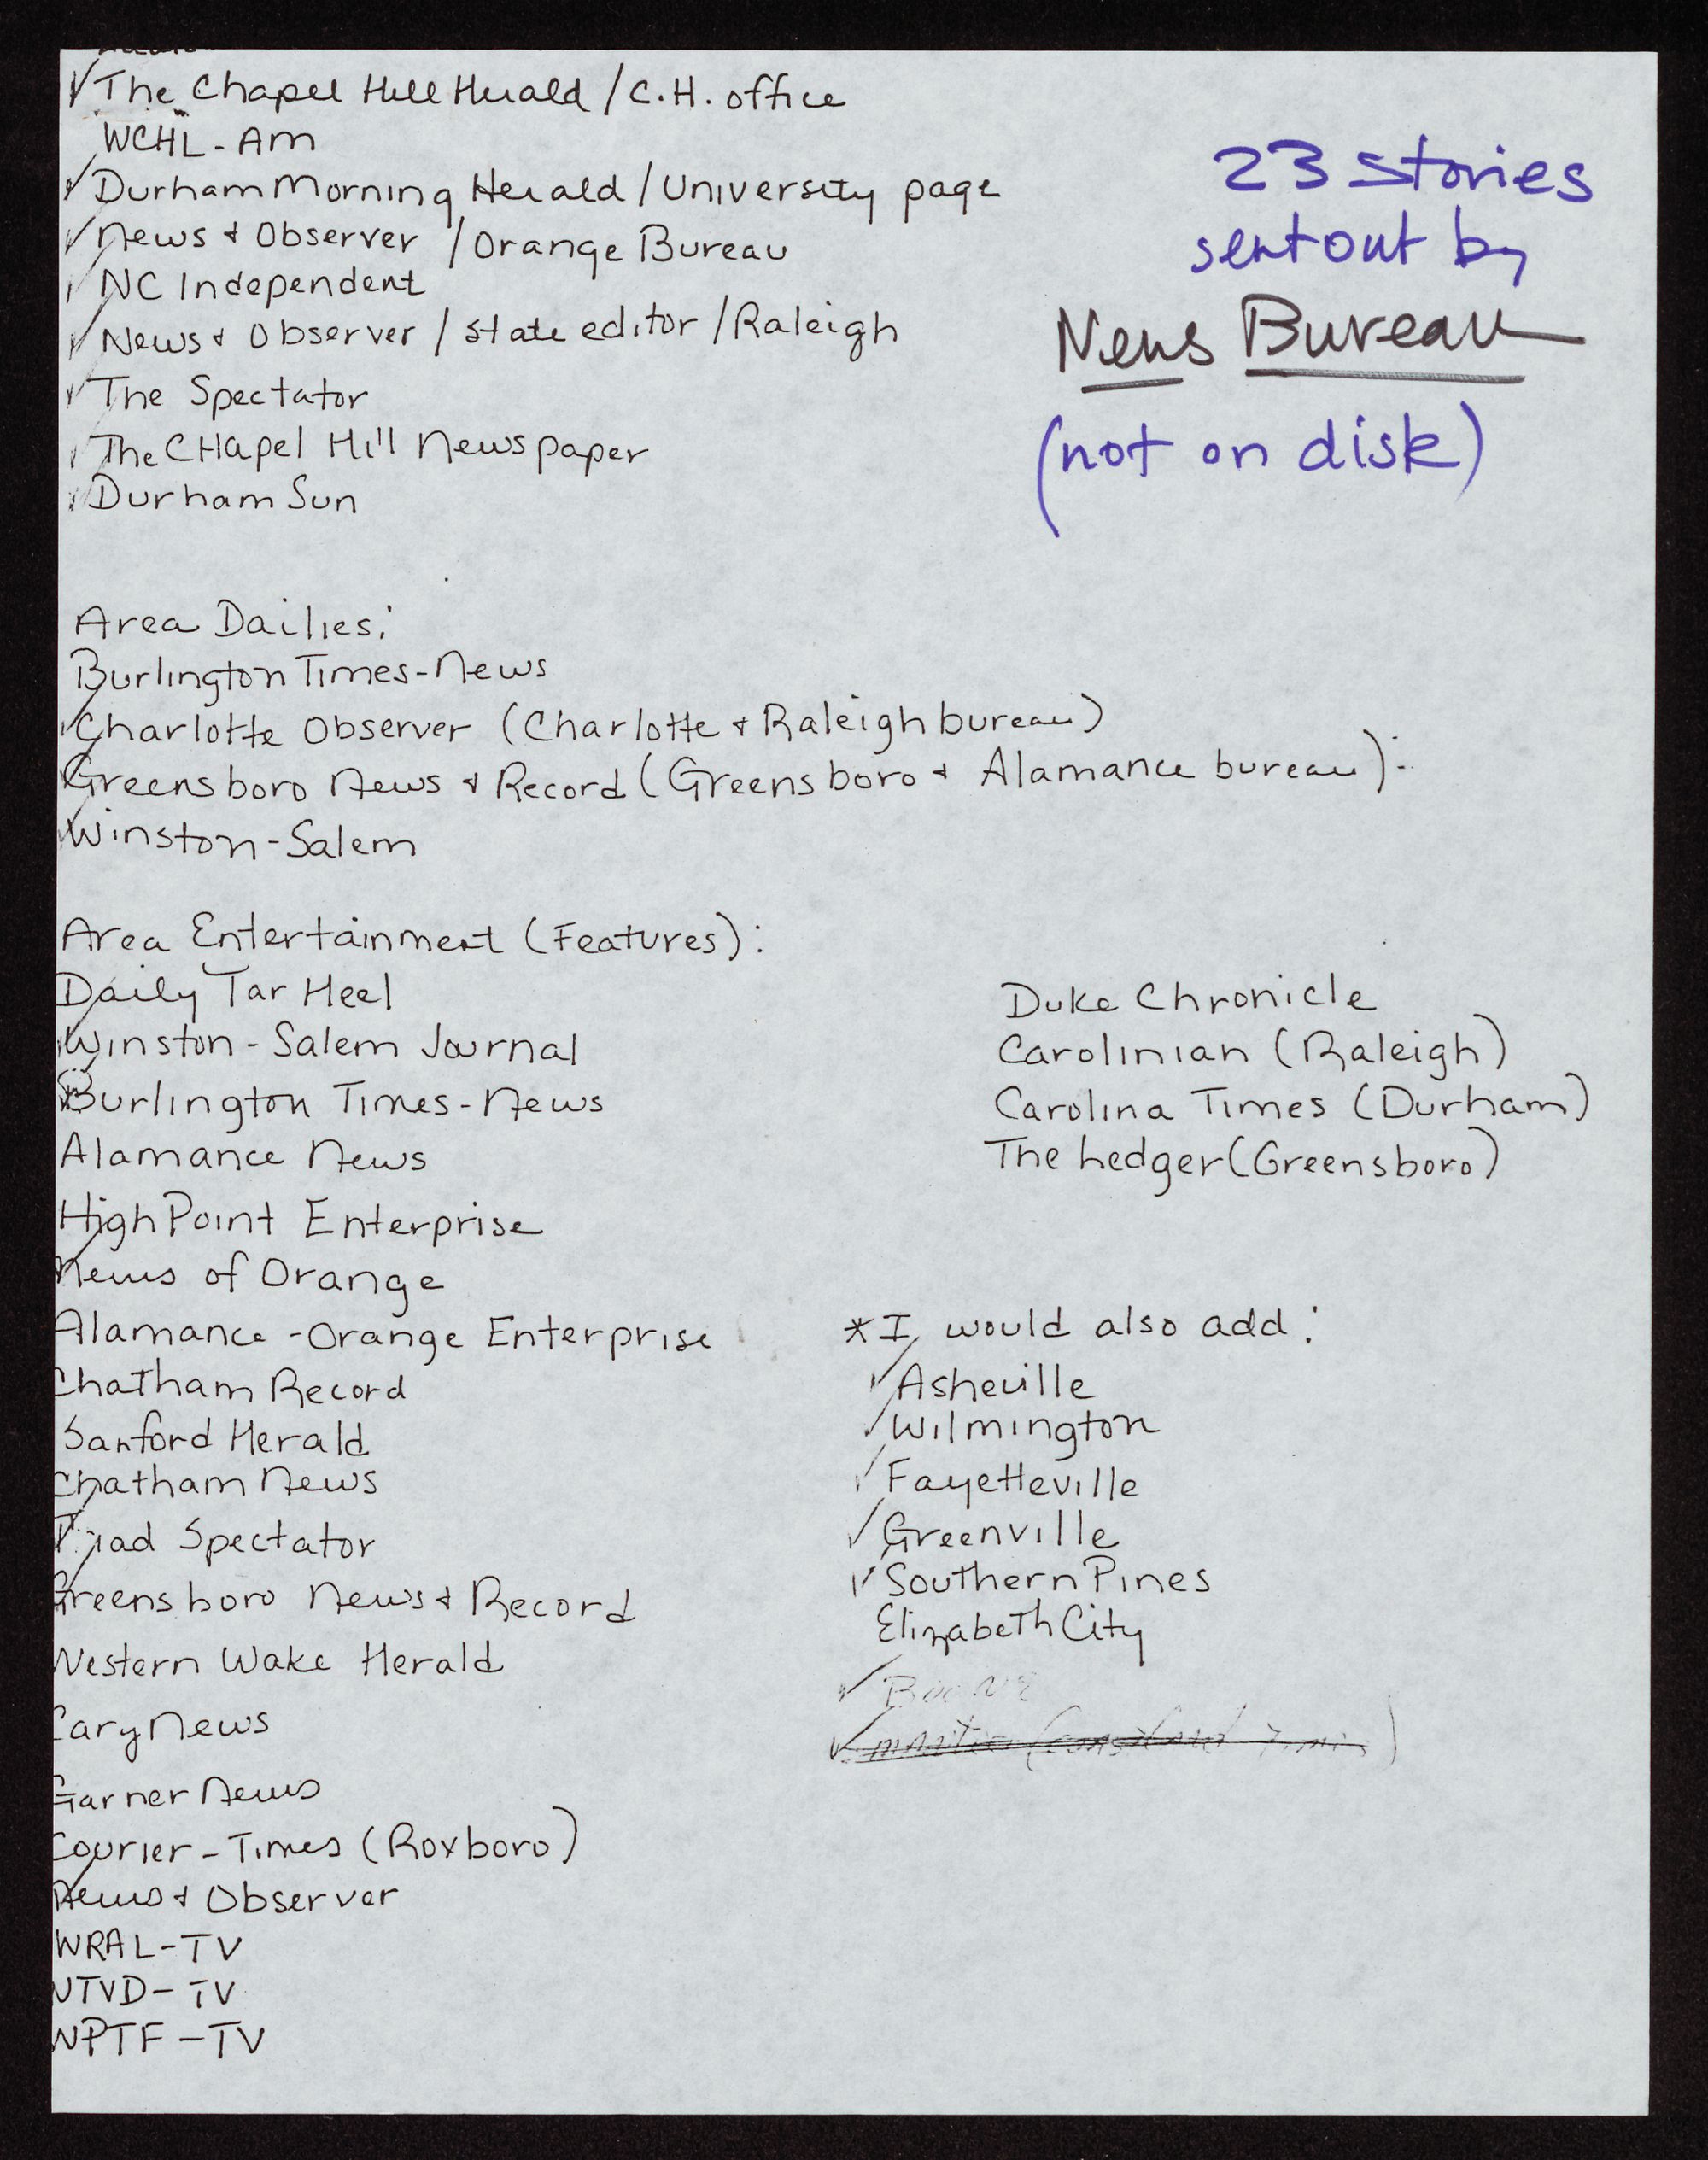 ✓ The Chapel Hill Herald / C.H. office
WCHL-AM
✓ Durham Morning Herald / University page
✓ News & Observer / Orange Bureau
✓ NC Independent
✓ News & Observer / state editor / Raleigh
✓ The Spectator
✓ The CHapel Hill Newspaper
✓ Durham Sun
23 stories
sent out by
News Bureau
(not on disk)
Area Dailies:
Burlington Times-News
✓ Charlotte Observer (Charlotte & Raleigh bureau)
✓ Greensboro News & Record (Greensboro & Alamance bureau)
✓ Winston-Salem
Area Entertainment (Features):
Daily Tar Heel
✓ Winston-Salem Journal
Burlington Times-News
Alamance News
High Point Enterprise
✓ News of Orange
Alamance-Orange Enterprise
Chatham Record
Sanford Herald
Chatham News
✓ Triad Spectator
✓ Greensboro News & Record
Western Wake Herald
Cary News
Garner News
Courier-Times (Roxboro)
✓ News & Observer
WRAL-TV
WTVD-TV
WPTF-TV
Duke Chronicle
Carolinian (Raleigh)
Carolina Times (Durham)
The Ledger (Greensboro)
*I would also add:
✓ Asheville
✓ Wilmington
✓ Fayetteville
✓ Greenville
✓ Southern Pines
Elizabeth City
✓ Boone